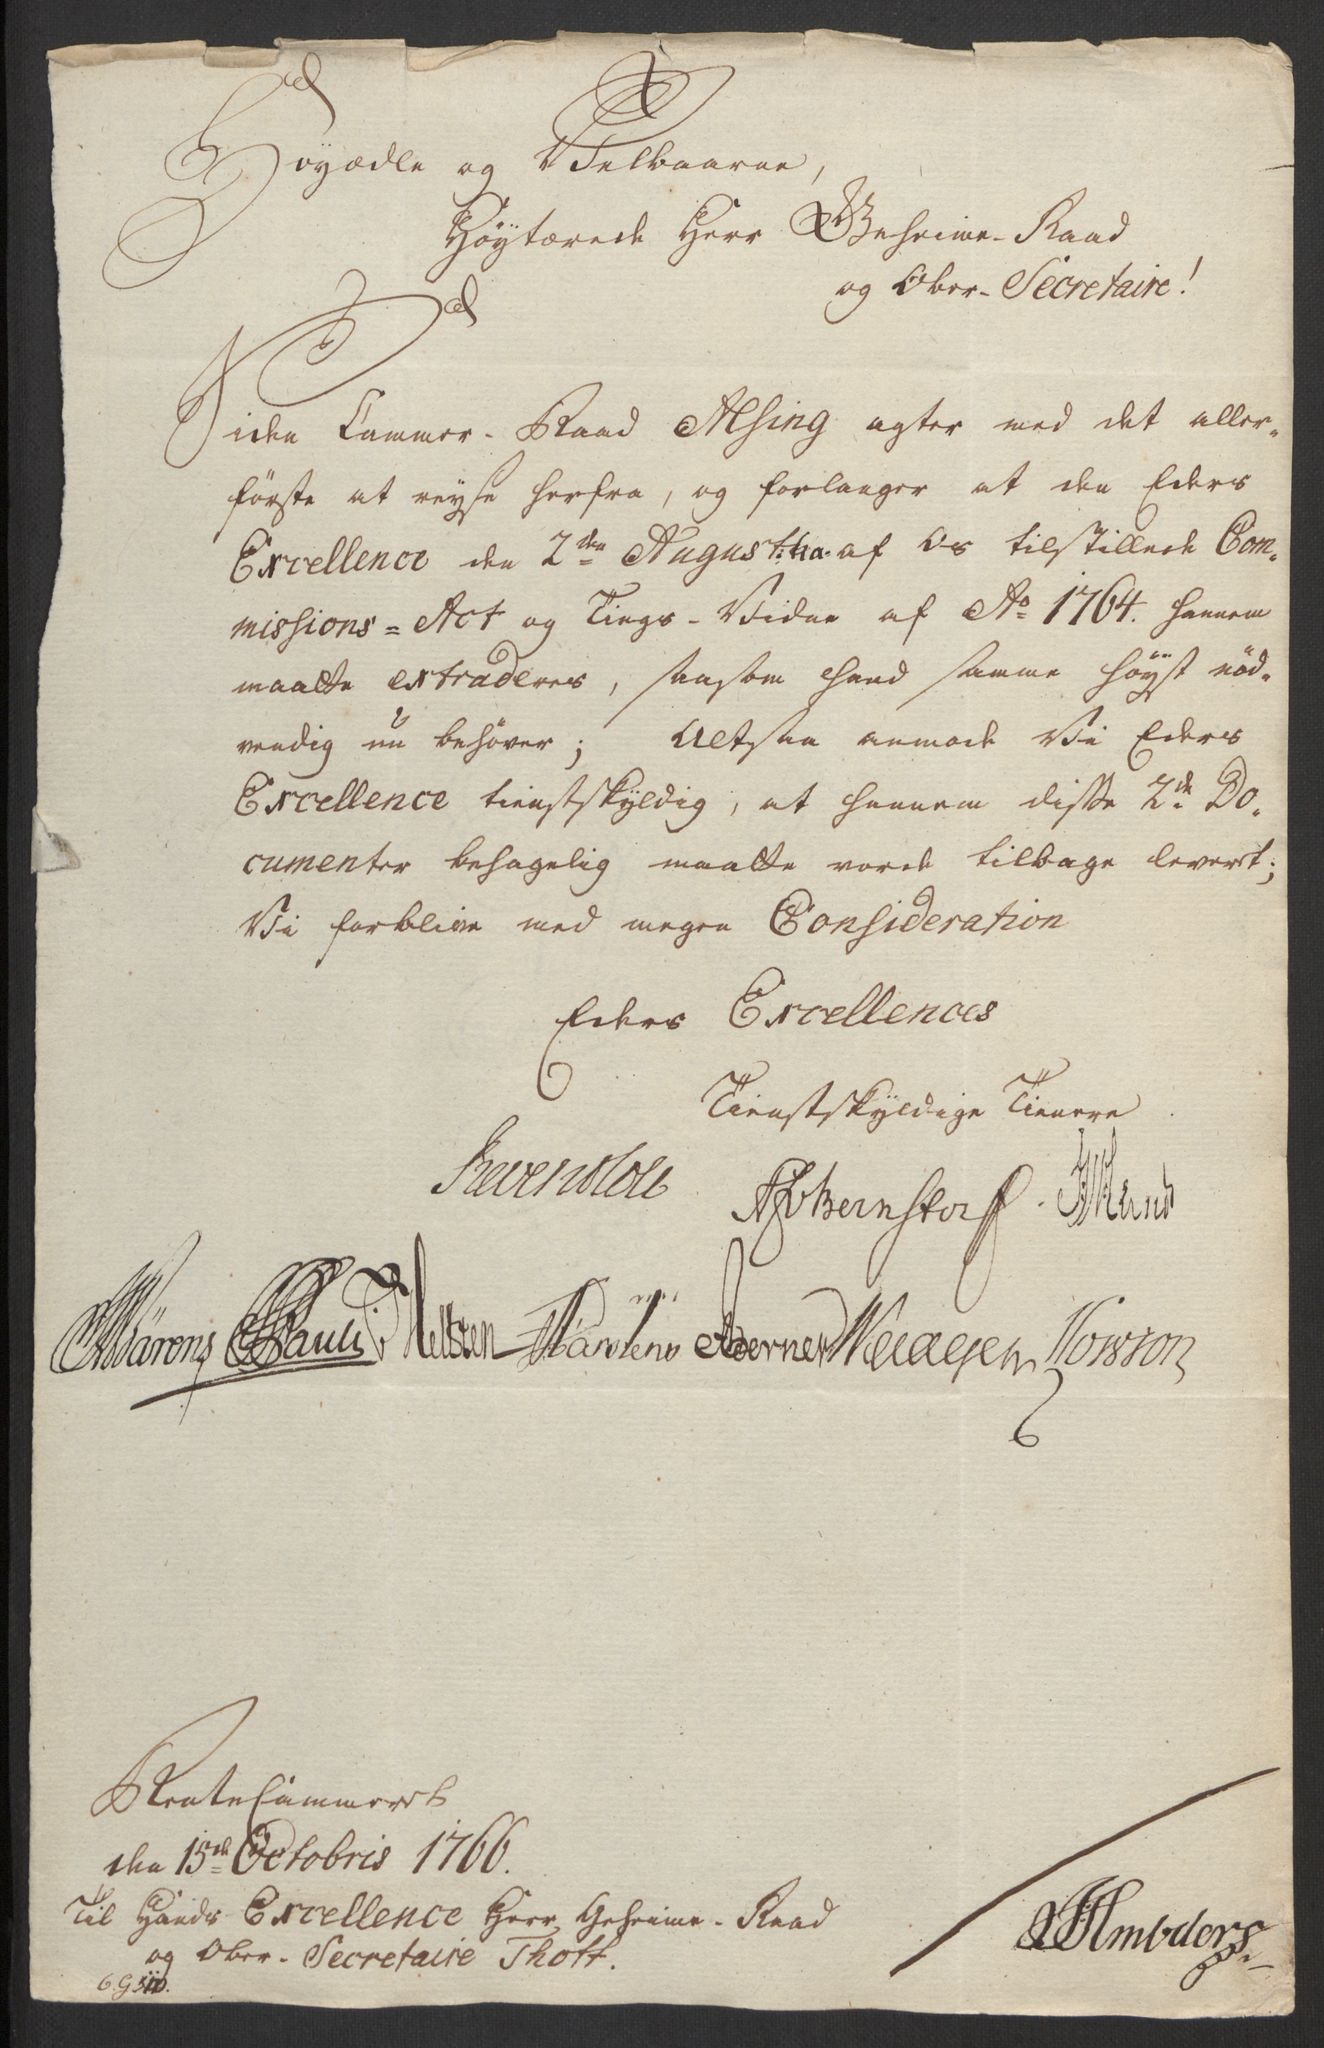 Høyædle og Velbaarne,
Høytærede Herr Geheime-Raad
og Ober-Secretaire!
Siden Cammer-Raad Alsing agter med det aller-
første at reyse herfra, og forlanger at den Eders
Excellence den 2den Augusti h: a: af Os tilstillede Com-
missions-Act og Tings-Vidne af Ao 1764. hannem
maatte extraderes, saasom hand samme høyst nød-
vendig nu behøver; Altsaa anmode Vi Eders
Excellence tienstskyldig, at hannem disse 2de Do-
cumenter behagelig maatte vorde tilbage levert;
Vi forblive med megen Consideration
Eders Excellences
Tienstskyldige Tienere
Reventlow ABernstorff
Bärens Pauli Märtens
RenteCammeret
den 15de Octobris 1766.
Til Hands Excellence Herr Geheime-Raad
og Ober-Secretaire Thott.